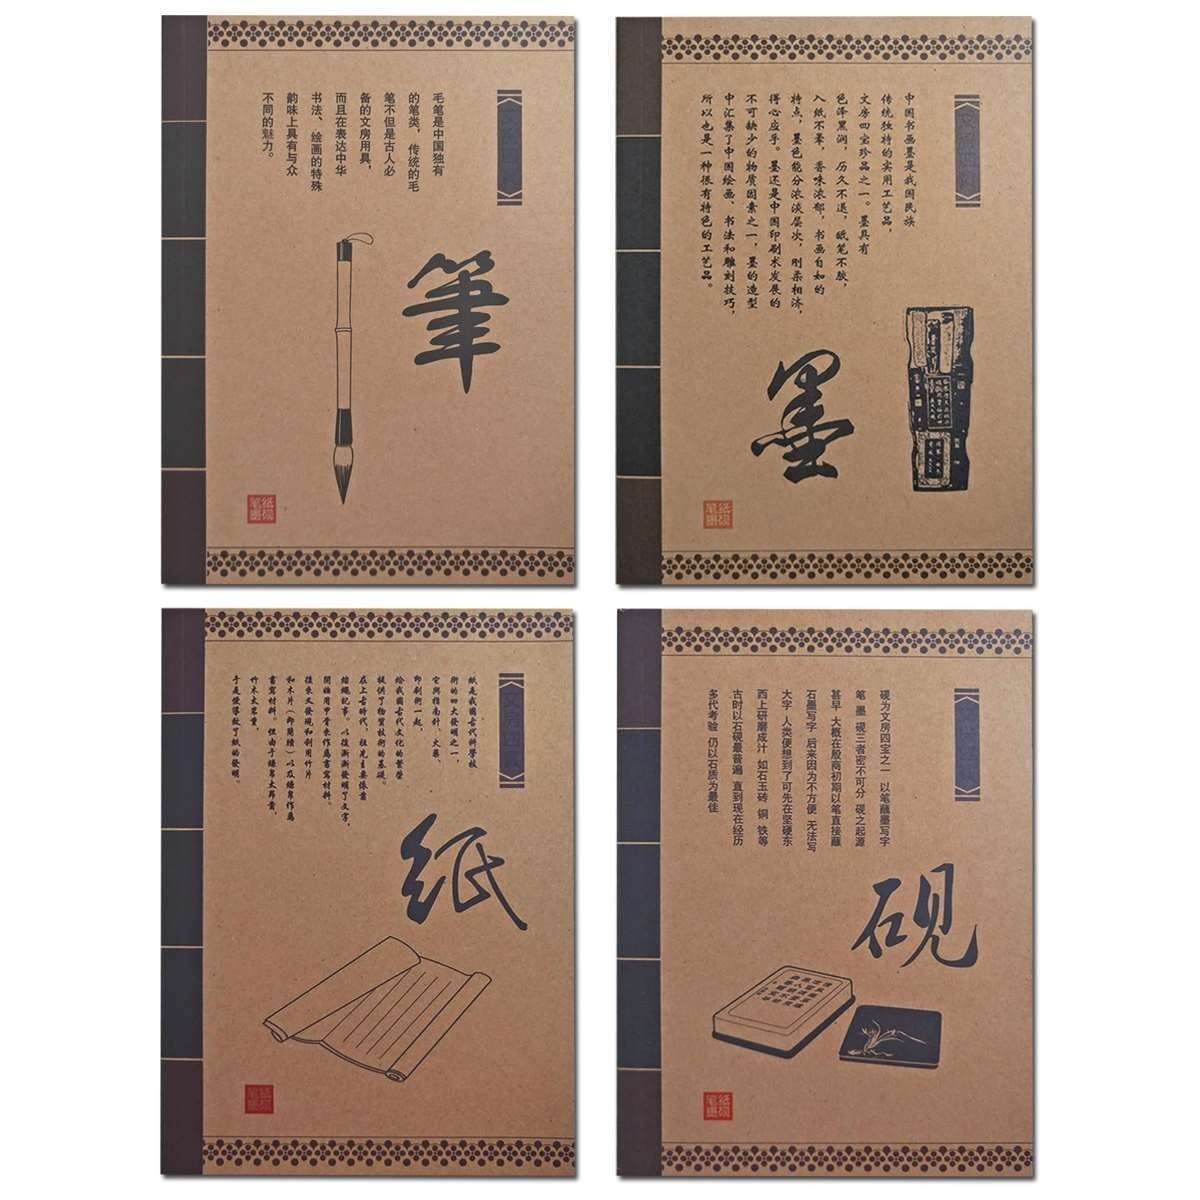 文房四宝
毛笔是中国独有
的笔类，传统的毛
笔不但是古人必
备的文房用具，
而且在表达中华
书法、绘画的特殊
韵味上具有与众
不同的魅力。
筆
纸砚
笔墨
文房四宝
中国书画墨是我国民族
传统独特的实用工艺品，
文房四宝珍品之一。墨具有
色泽黑润，历久不退，纸笔不胶，
入纸不晕，香味浓郁，书画自如的
特点，墨色能分浓淡层次，刚柔相济，
得心应手。墨还是中国印刷术发展的
不可缺少的物质因素之一，墨的造型
中汇集了中国绘画、书法和雕刻技巧，
所以也是一种很有特色的工艺品。
墨
纸砚
笔墨
文房四宝
紙是我國古代科學技
術的四大發明之一，
它與指南針、火藥、
印刷術一起，
給我國古代文化的繁榮
提供了物質技術的基礎。
在上古時代，祖先主要依靠
結繩記事。以後漸漸發明了文字，
開始用甲骨來作爲書寫材料。
後來又發現和利用竹片
和木片（即簡牘）以及縑帛作爲
書寫材料。但由于縑帛太昂貴，
竹木太笨重，
于是便導致了紙的發明。
纸
纸砚
笔墨
文房四宝
砚为文房四宝之一 以笔蘸墨写字
笔 墨 砚三者密不可分 砚之起源
甚早 大概在殷商初期以笔直接蘸
石墨写字 后来因为不方便 无法写
大字 人类便想到了可先在坚硬东
西上研磨成汁 如石玉砖 铜 铁等
古时以石砚最普遍 直到现在经历
多代考验 仍以石质为最佳
砚
纸砚
笔墨